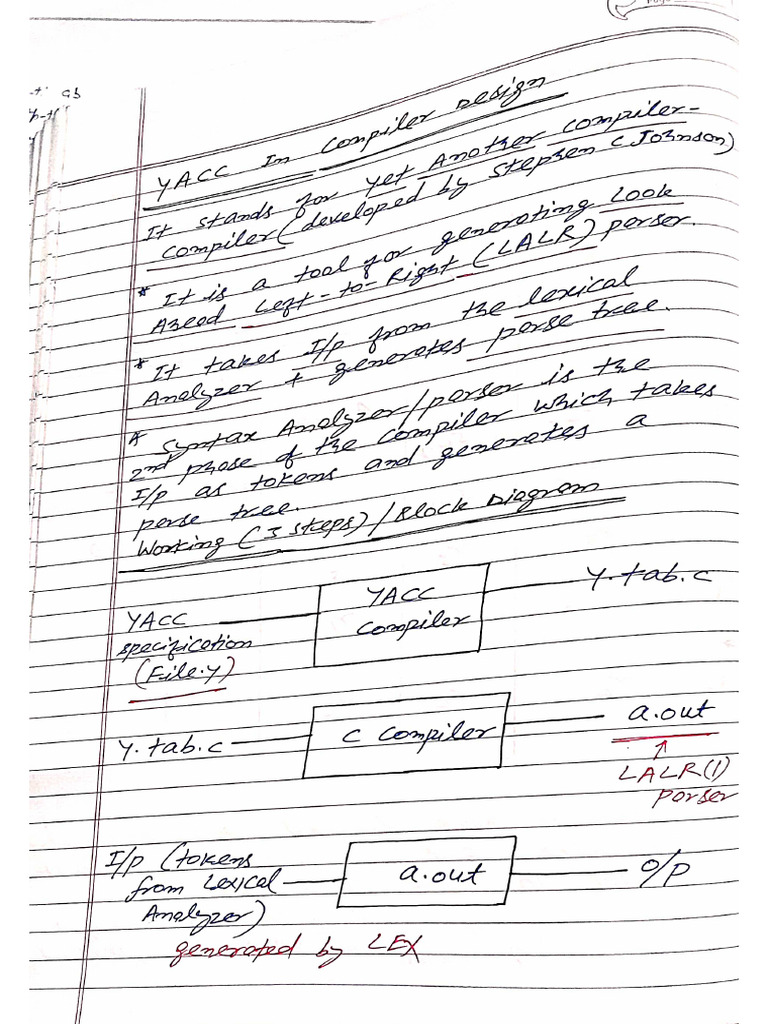 YACC In Compiler Design
It stands for Yet Another Compiler-
Compiler (developed by Stephen C. Johnson)
* It is a tool for generating Look
Ahead Left-to-Right (LALR) parser.
* It takes I/p from the lexical
Analyzer + generates parse tree.
* Syntax Analyzer/parser is the
2nd phase of the Compiler which takes
I/p as tokens and generates a
parse tree.
Working (3 steps) / Block Diagram
YACC
specification
(File.y)
YACC
Compiler
y.tab.c
y.tab.c
C Compiler
a.out
↑
LALR(1)
parser
I/p (tokens
from Lexical
Analyzer)
generated by LEX
a.out
O/P